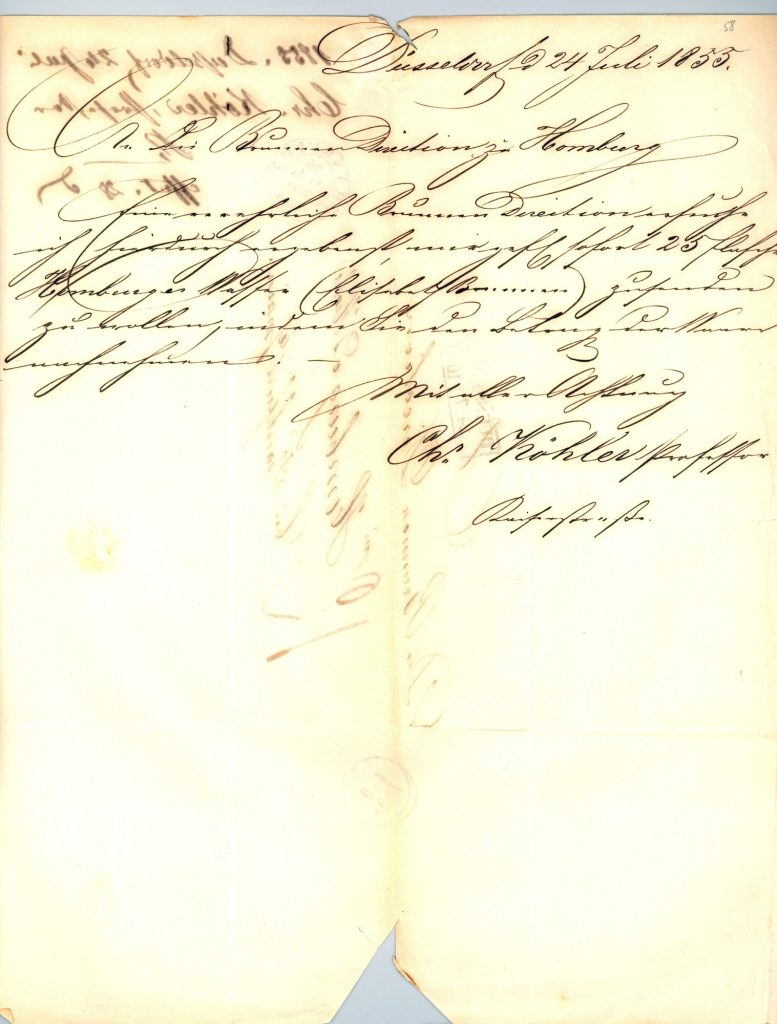 58
Düsseldorf d 24 Juli 1855.
An die Brunnen Direction zu Homburg
Eine verehrliche Brunnen Direction ersuche
ich hierdurch ergebenst, mir gefl. sofort 25 Flasche
Homburger Wasser (Elisabethbrunnen) zusenden
zu wollen, indem Sie den Betrag der Waare
nachnehmen. —
Mit aller Achtung
Chr. Köhler, Professor
Kaiserstraße.